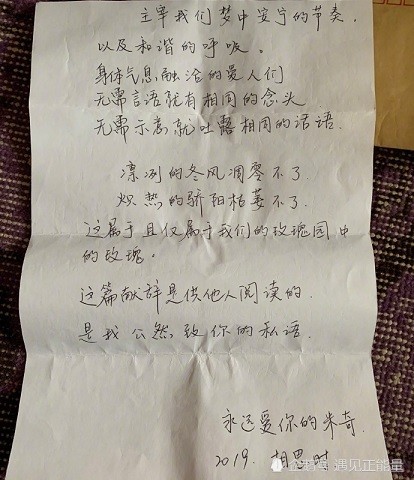 主宰我们梦中安宁的节奏.
以及和谐的呼吸。
身体气息融洽的爱人们
无需言语就有相同的念头
无需示意就吐露相同的话语.
凛冽的冬风凋零不了
炽热的骄阳枯萎不了.
这属于且仅属于我们的玫瑰园中
的玫瑰。
这篇献辞是供他人阅读的.
是我公然致你的私语.
永远爱你的米奇.
2019. 相思时
遇见正能量